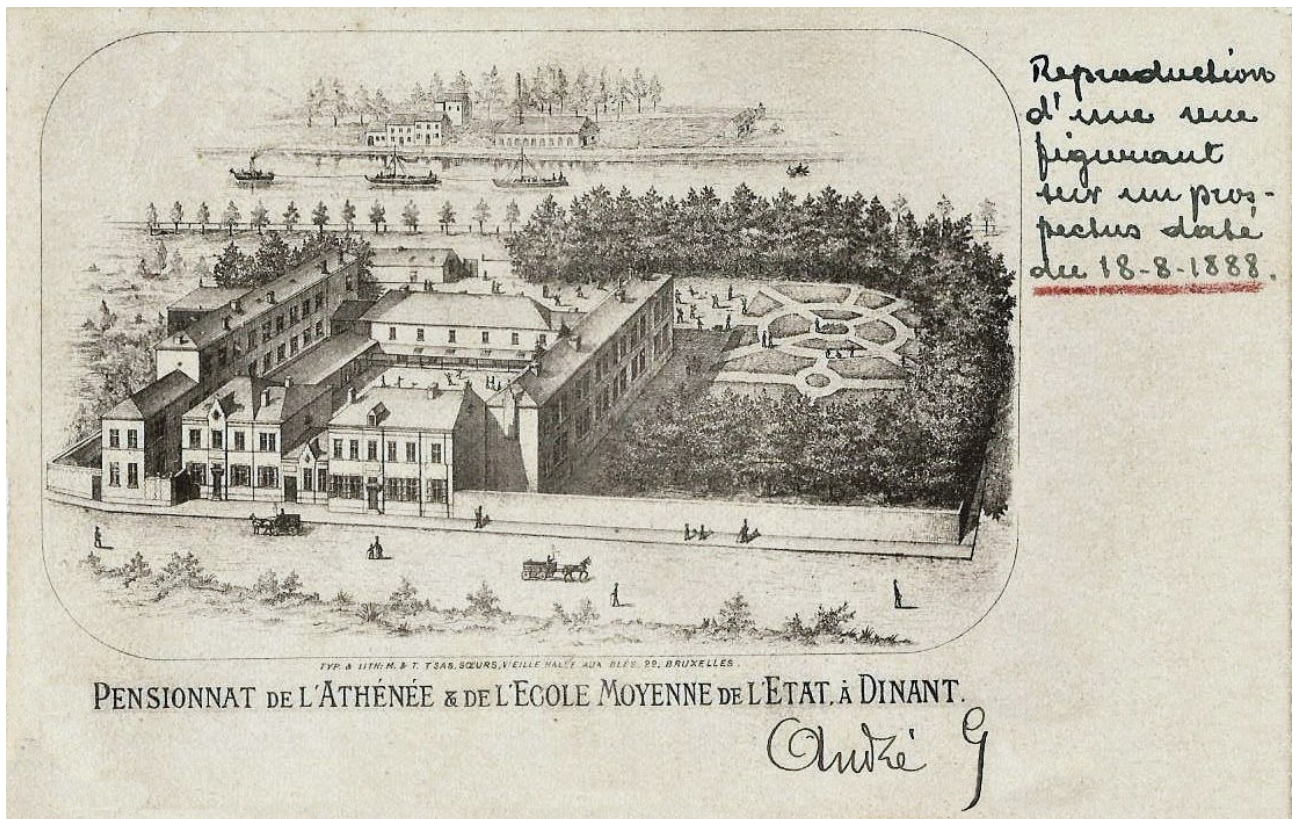 Reproduction
d'une vue
figurant
sur un pros-
pectus daté
du 18-8-1888.
TYP. & LITH. M. & T. TSAS, SŒURS, VIEILLE HALLE AUX BLÉS, 29, BRUXELLES.
PENSIONNAT DE L'ATHÉNÉE & DE L'ECOLE MOYENNE DE L'ETAT, À DINANT.
André G